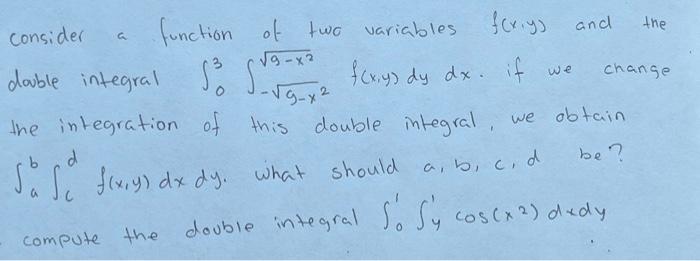 consider a function of two variables f(x,y) and the
double integral ∫₀³ ∫_{-√9-x²}^{√9-x²} f(x,y) dy dx. if we change
the integration of this double integral, we obtain
∫ₐᵇ ∫_c^d f(x,y) dx dy. what should a, b, c, d be?
compute the double integral ∫₀¹ ∫_y^1 cos(x²) dxdy